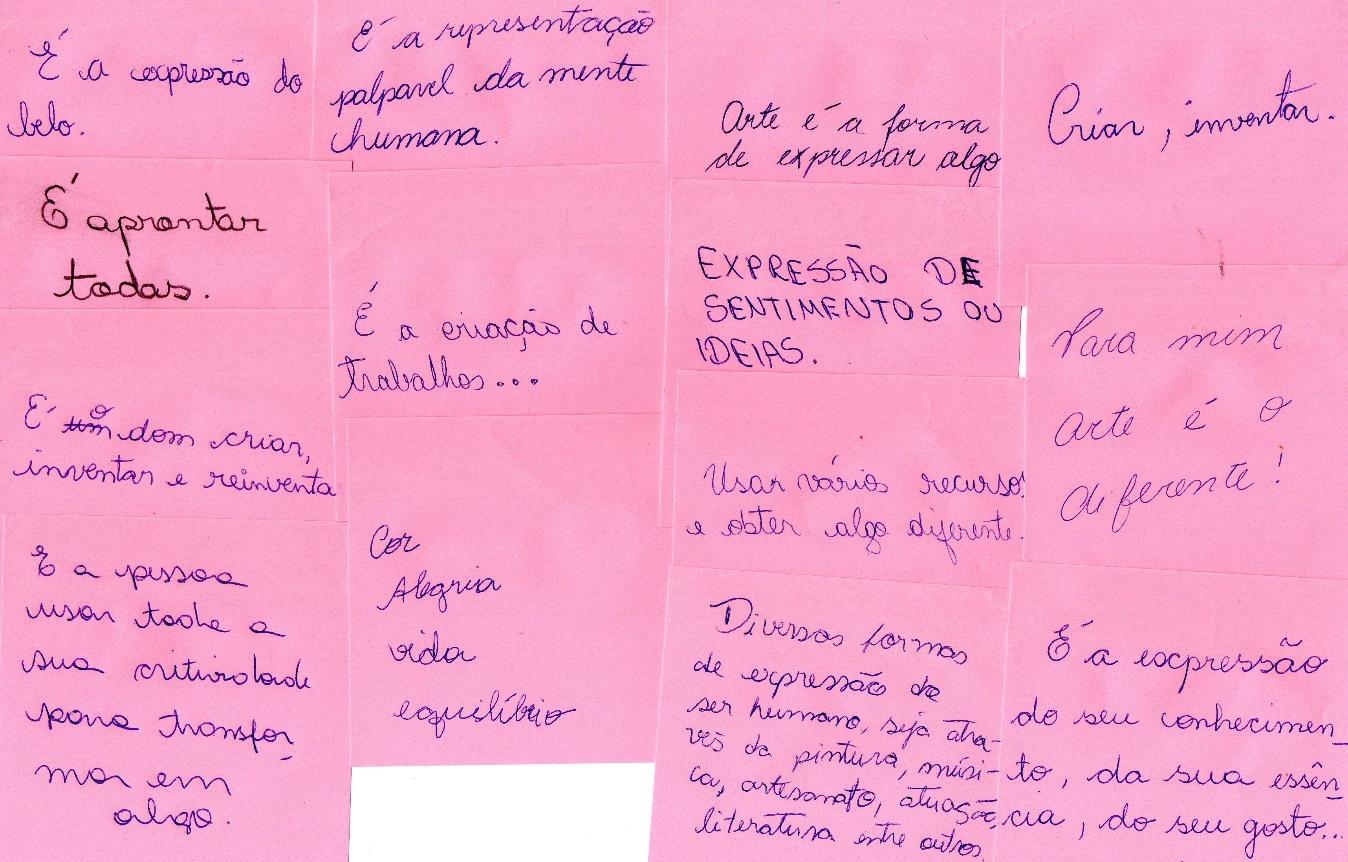 É a expressão do
belo.
É aprontar
todas.
É o dom criar,
inventar e reinventa
E a pessoa
usar toda a
sua critividade
para transfor
mar em
algo.
É a representação
palpavel da mente
humana.
É a criação de
trabalhos...
Cor
Alegria
vida
equilíbrio
Arte é a forma
de expressar algo
EXPRESSÃO DE
SENTIMENTOS OU
IDEIAS.
Usar vários recursos
e obter algo diferente.
Diversas formas
de expressão do
ser humano, seja atra-
vés da pintura, músi-
ca, artesanato, atuação,
literatura entre outros.
Criar, inventar.
Para mim
arte é o
diferente!
É a expressão
do seu conhecimen_
to, da sua essên_
cia, do seu gosto...